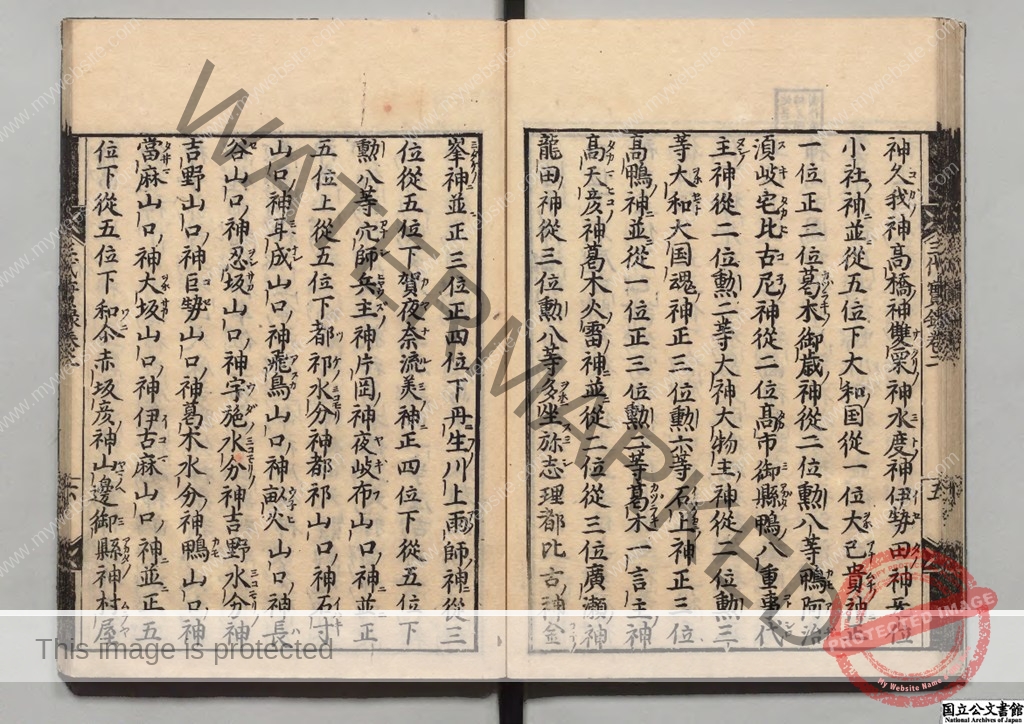 神久我神高橋神雙栗神水度神伊勢田神
小社神並從五位下大和国從一位大己貴神正
一位正二位葛木御歳神從二位勲八等鴨阿治
湏岐宅比古尼神從二位髙市御縣鴨八重事代
主神從二位勲二等大神大物主神從二位勲三
等大和大国魂神正三位勲六等石上神正三位
髙鴨神並從一位正三位勲二等葛木一言主神
髙天彦神葛木火雷神並從二位從三位廣瀬神
龍田神從三位勲八等多坐弥志理都比古神金
峯神並正三位正四位下丹生川上雨師神從三
位從五位下賀夜奈流美神正四位下從五位下
勲八等穴師兵主神片岡神夜岐布山口神並正
五位上從五位下都祁水分神都祁山口神石寸
山口神耳成山口神飛鳥山口神畝火山口神長
谷山口神忍坂山口神宇施水分神吉野水分神
吉野山口神巨勢山口神葛木水分神鴨山口神
當麻山口神大坂山口神伊古麻山口神並正五
位下從五位下和尒赤坂彦神山邊御縣神村屋
三代實録巻二
五
三代實録巻二
六
WATERMARKED
www.mywebsite.com
PROTECTED IMAGE
My Website Name
This image is protected
国立公文書館
National Archives of Japan